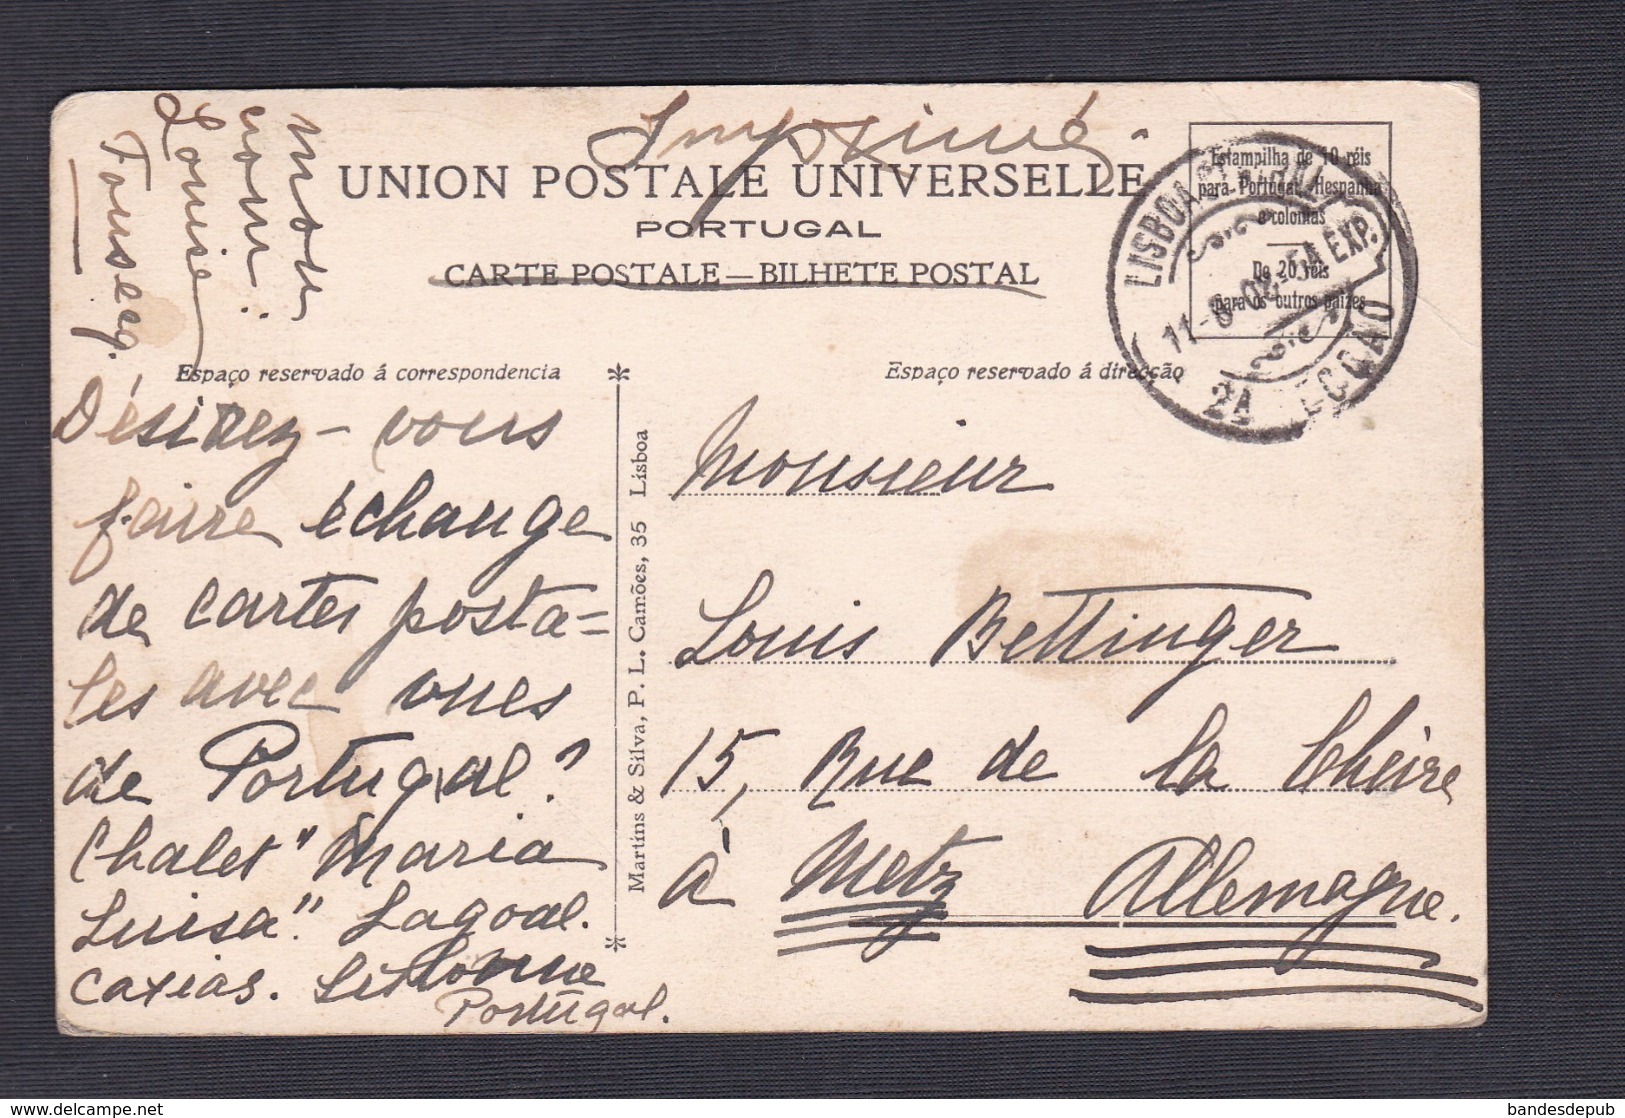 Imprimé.
UNION POSTALE UNIVERSELLE
PORTUGAL
CARTE POSTALE — BILHETE POSTAL
Estampilha de 10 réis
para Portugal, Hespanha
e colonias
De 20 réis
para os outros paizes
LISBOA CENTRAL
11-8-08-5A EXP.
2A SECÇÃO
Mon
nom:
Louise
Fonseca.
Espaço reservado á correspondencia
Espaço reservado á direcção
Désirez-vous
faire échange
de cartes posta=
les avec vues
de Portugal?
Chalet "Maria
Luisa". Lagoal.
Caxias. Lisbonne
Portugal.
Martins & Silva, P. L. Camões, 35 Lisboa
Monsieur
Louis Bettinger
15, Rue de la Chèvre
à Metz Allemagne.
www.delcampe.net
bandesdepub